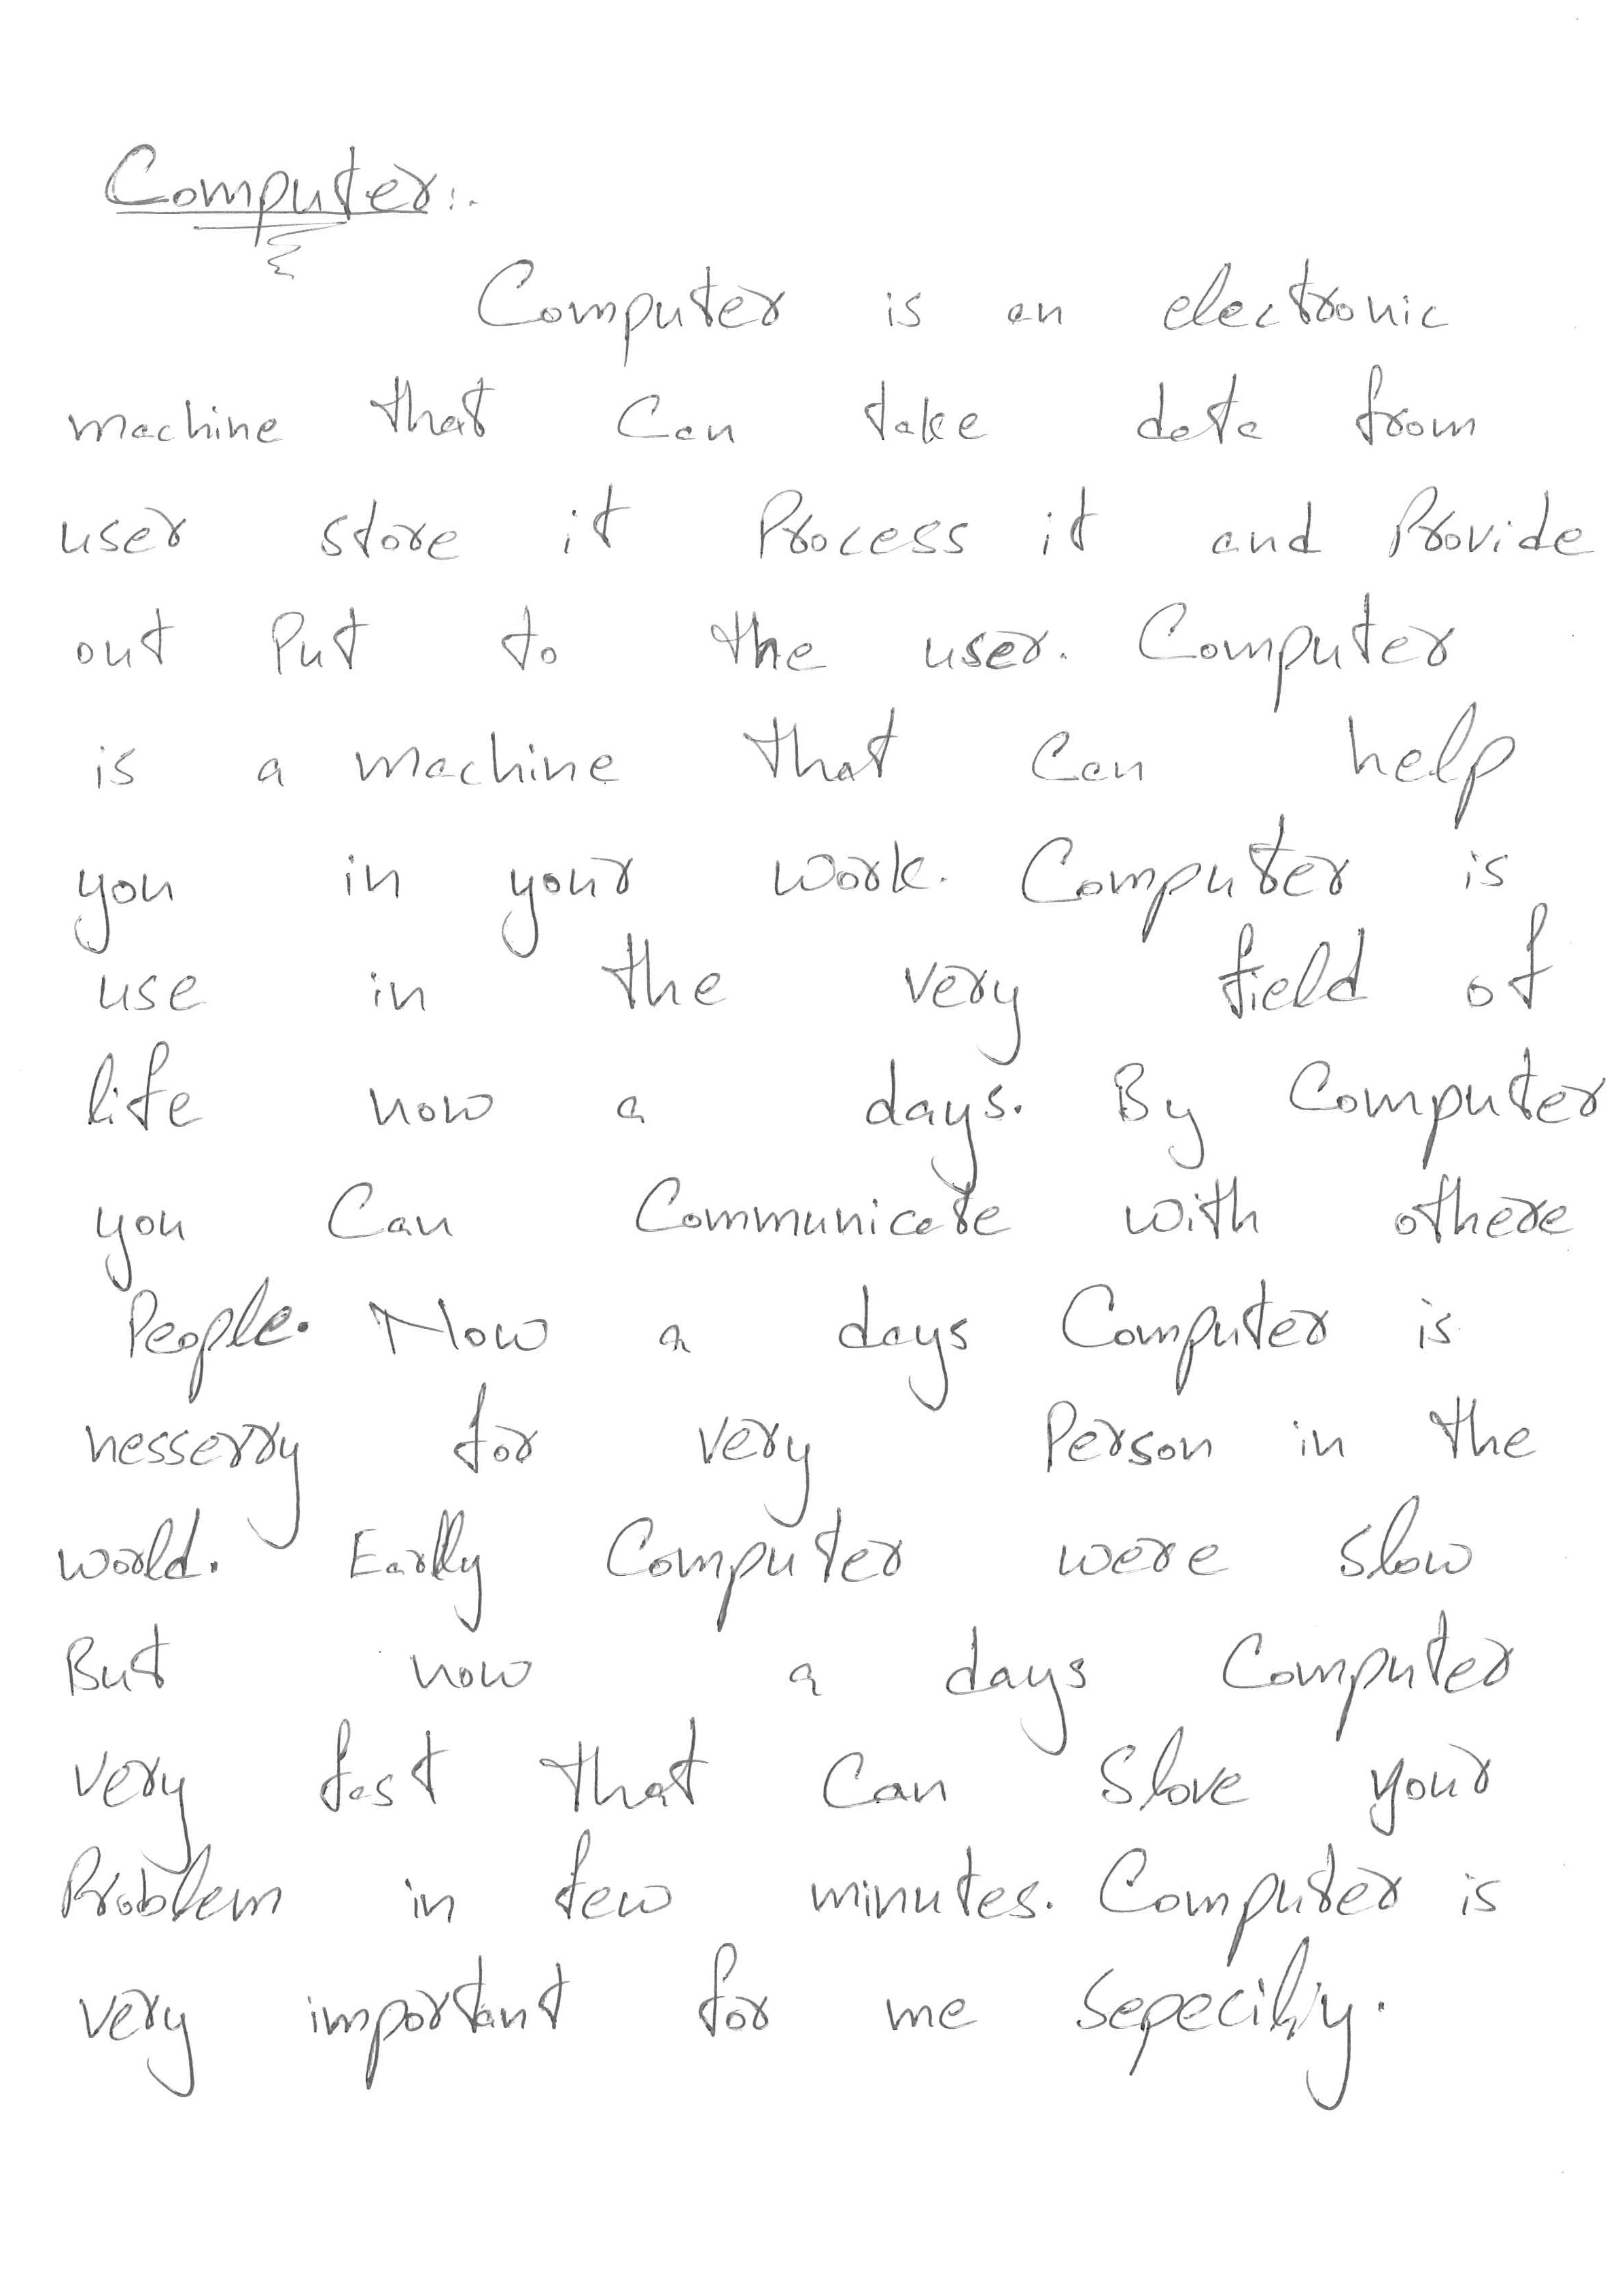 Computer:-
Computer is an electronic
machine that Can take data from
user store it Process it and Provide
out Put to the user. Computer
is a machine that Can help
you in your work. Computer is
use in the very field of
life now a days. By Computer
you Can Communicate with othere
People. Now a days Computer is
nesserry for very Person in the
world. Early Computer were slow
But now a days Computer
very fast that Can Slove your
Problem in few minutes. Computer is
very important for me sepecilly.